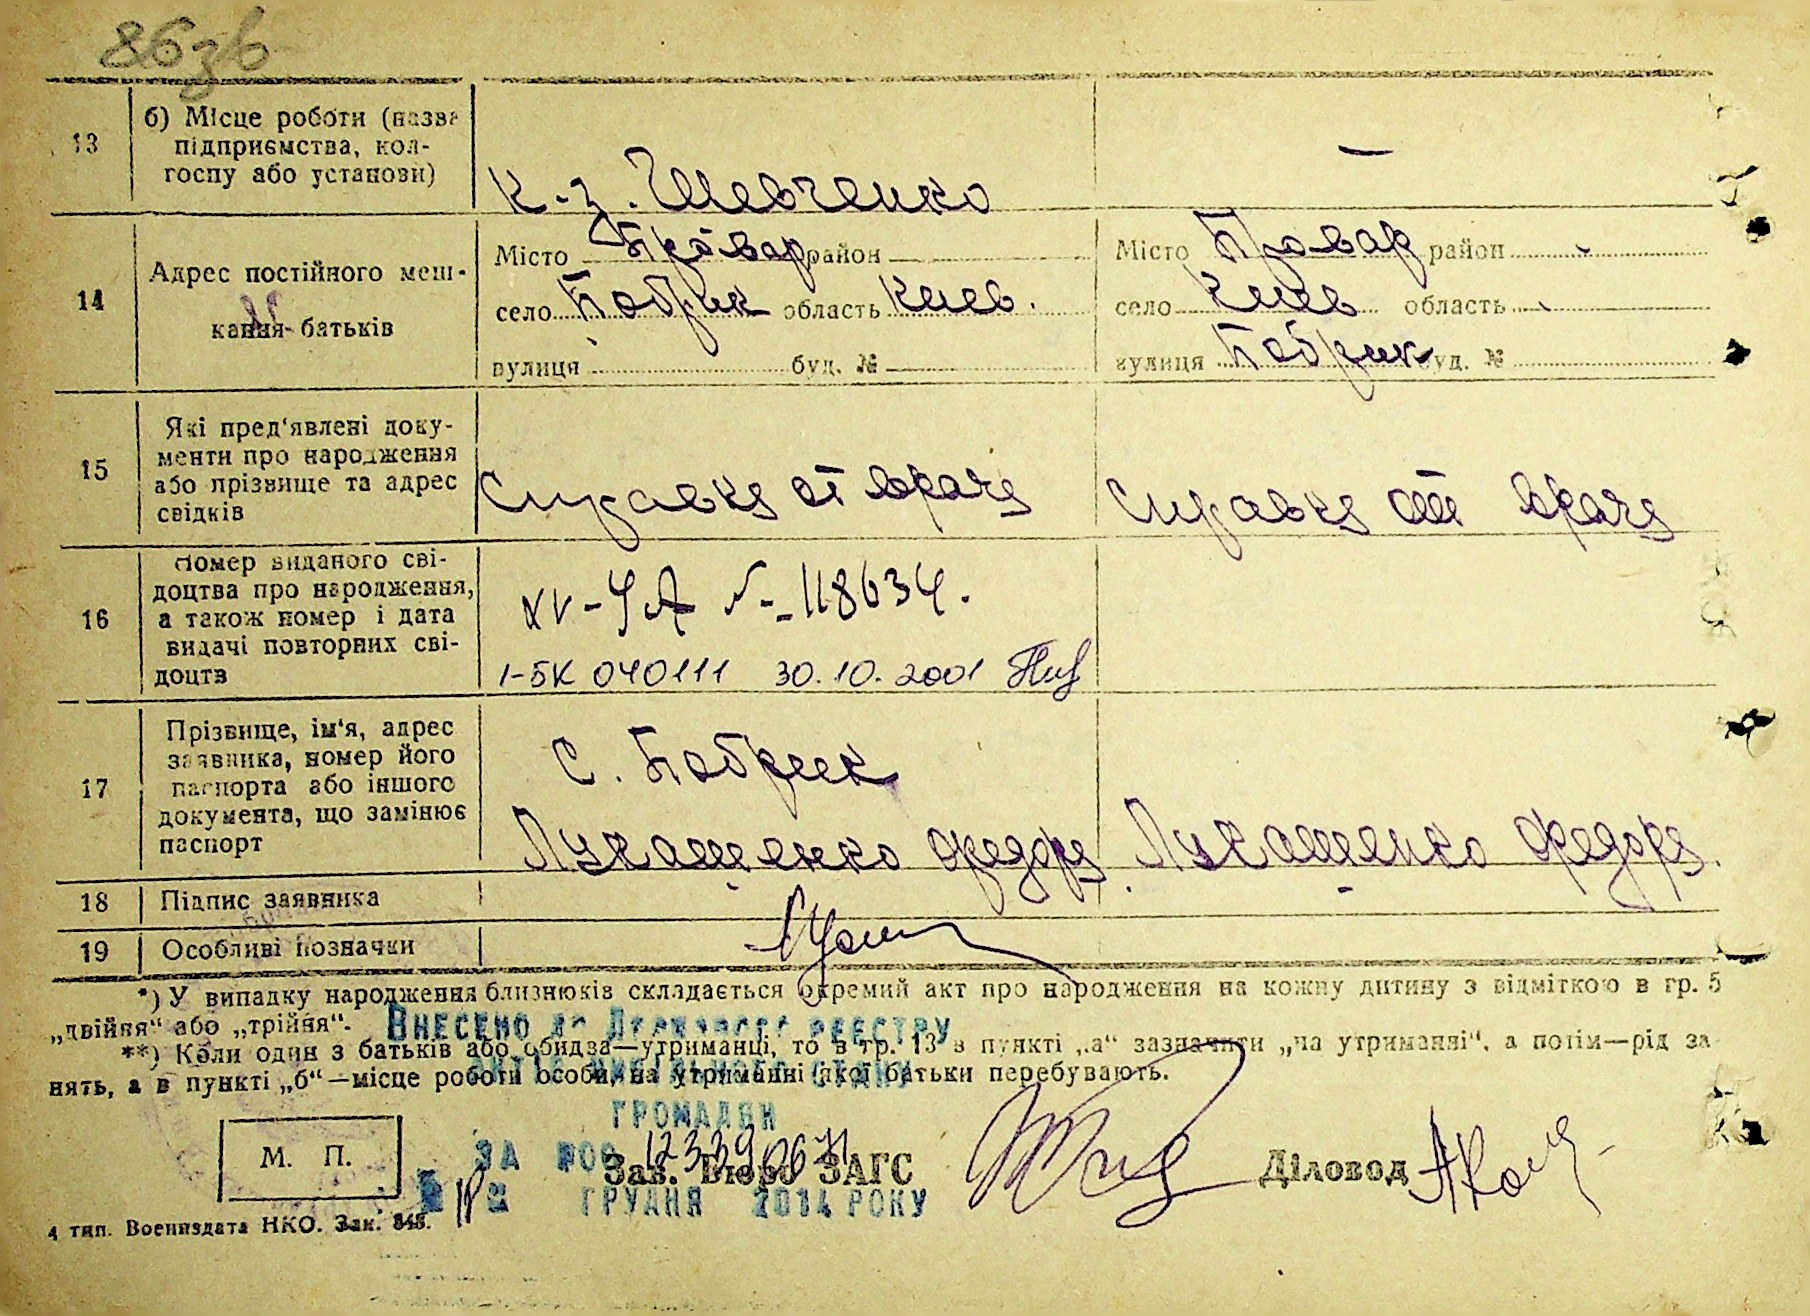 86зв
13
б) Місце роботи (назва
підприємства, кол-
госпу або установи)
к-з. Шевченко
—
14
Адрес постійного меш-
кання батьків
Місто Бровар район
село Бобрик область Киев.
вулиця буд. №
Місто Бровар район
село Киев область
вулиця Бобрик буд. №
15
Які пред'явлені доку-
менти про народження
або прізвище та адрес
свідків
Справка от врача
Справка от врача
16
Номер виданого сві-
доцтва про народження,
а також номер і дата
видачі повторних сві-
доцтв
XV-УА № 118634.
1-БК 040111 30.10.2001
17
Прізвище, ім'я, адрес
заявника, номер його
паспорта або іншого
документа, що замінює
паспорт
с. Бобрик
Лукашенко Федора
Лукашенко Федора.
18
Підпис заявника
19
Особливі позначки
*) У випадку народження близнюків складається окремий акт про народження на кожну дитину з відміткою в гр. 5
„двійня“ або „трійня“.
Внесено до Державного реєстру
**) Коли один з батьків або обидва—утриманці, то в гр. 13 в пункті „а“ зазначити „на утриманні“, а потім—рід за
нять, а в пункті „б“—місце роботи особи, на утриманні якої батьки перебувають.
громадян
М. П.
за №00
Зав. Бюро ЗАГС
Діловод
грудня 2014 року
4 тип. Воениздата НКО. Зак. 845.